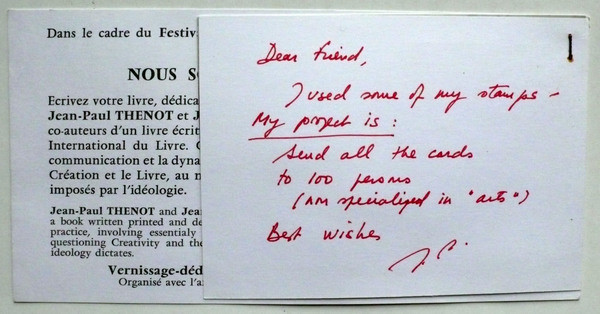 Dans le cadre du Festiv
NOUS S
Ecrivez votre livre, dédica
Jean-Paul THENOT et J
co-auteurs d'un livre écrit
International du Livre.
communication et la dyna
Création et le Livre, au
imposés par l'idéologie.
Jean-Paul THENOT and Jea
a book written printed and de
practice, involving essentialy
questioning Creativity and the
ideology dictates.
Vernissage-déd
Organisé avec l'a
Dear friend,
I used some of my stamps -
My project is :
Send all the cards
to 100 persons
specialized in "arts")
Best wishes